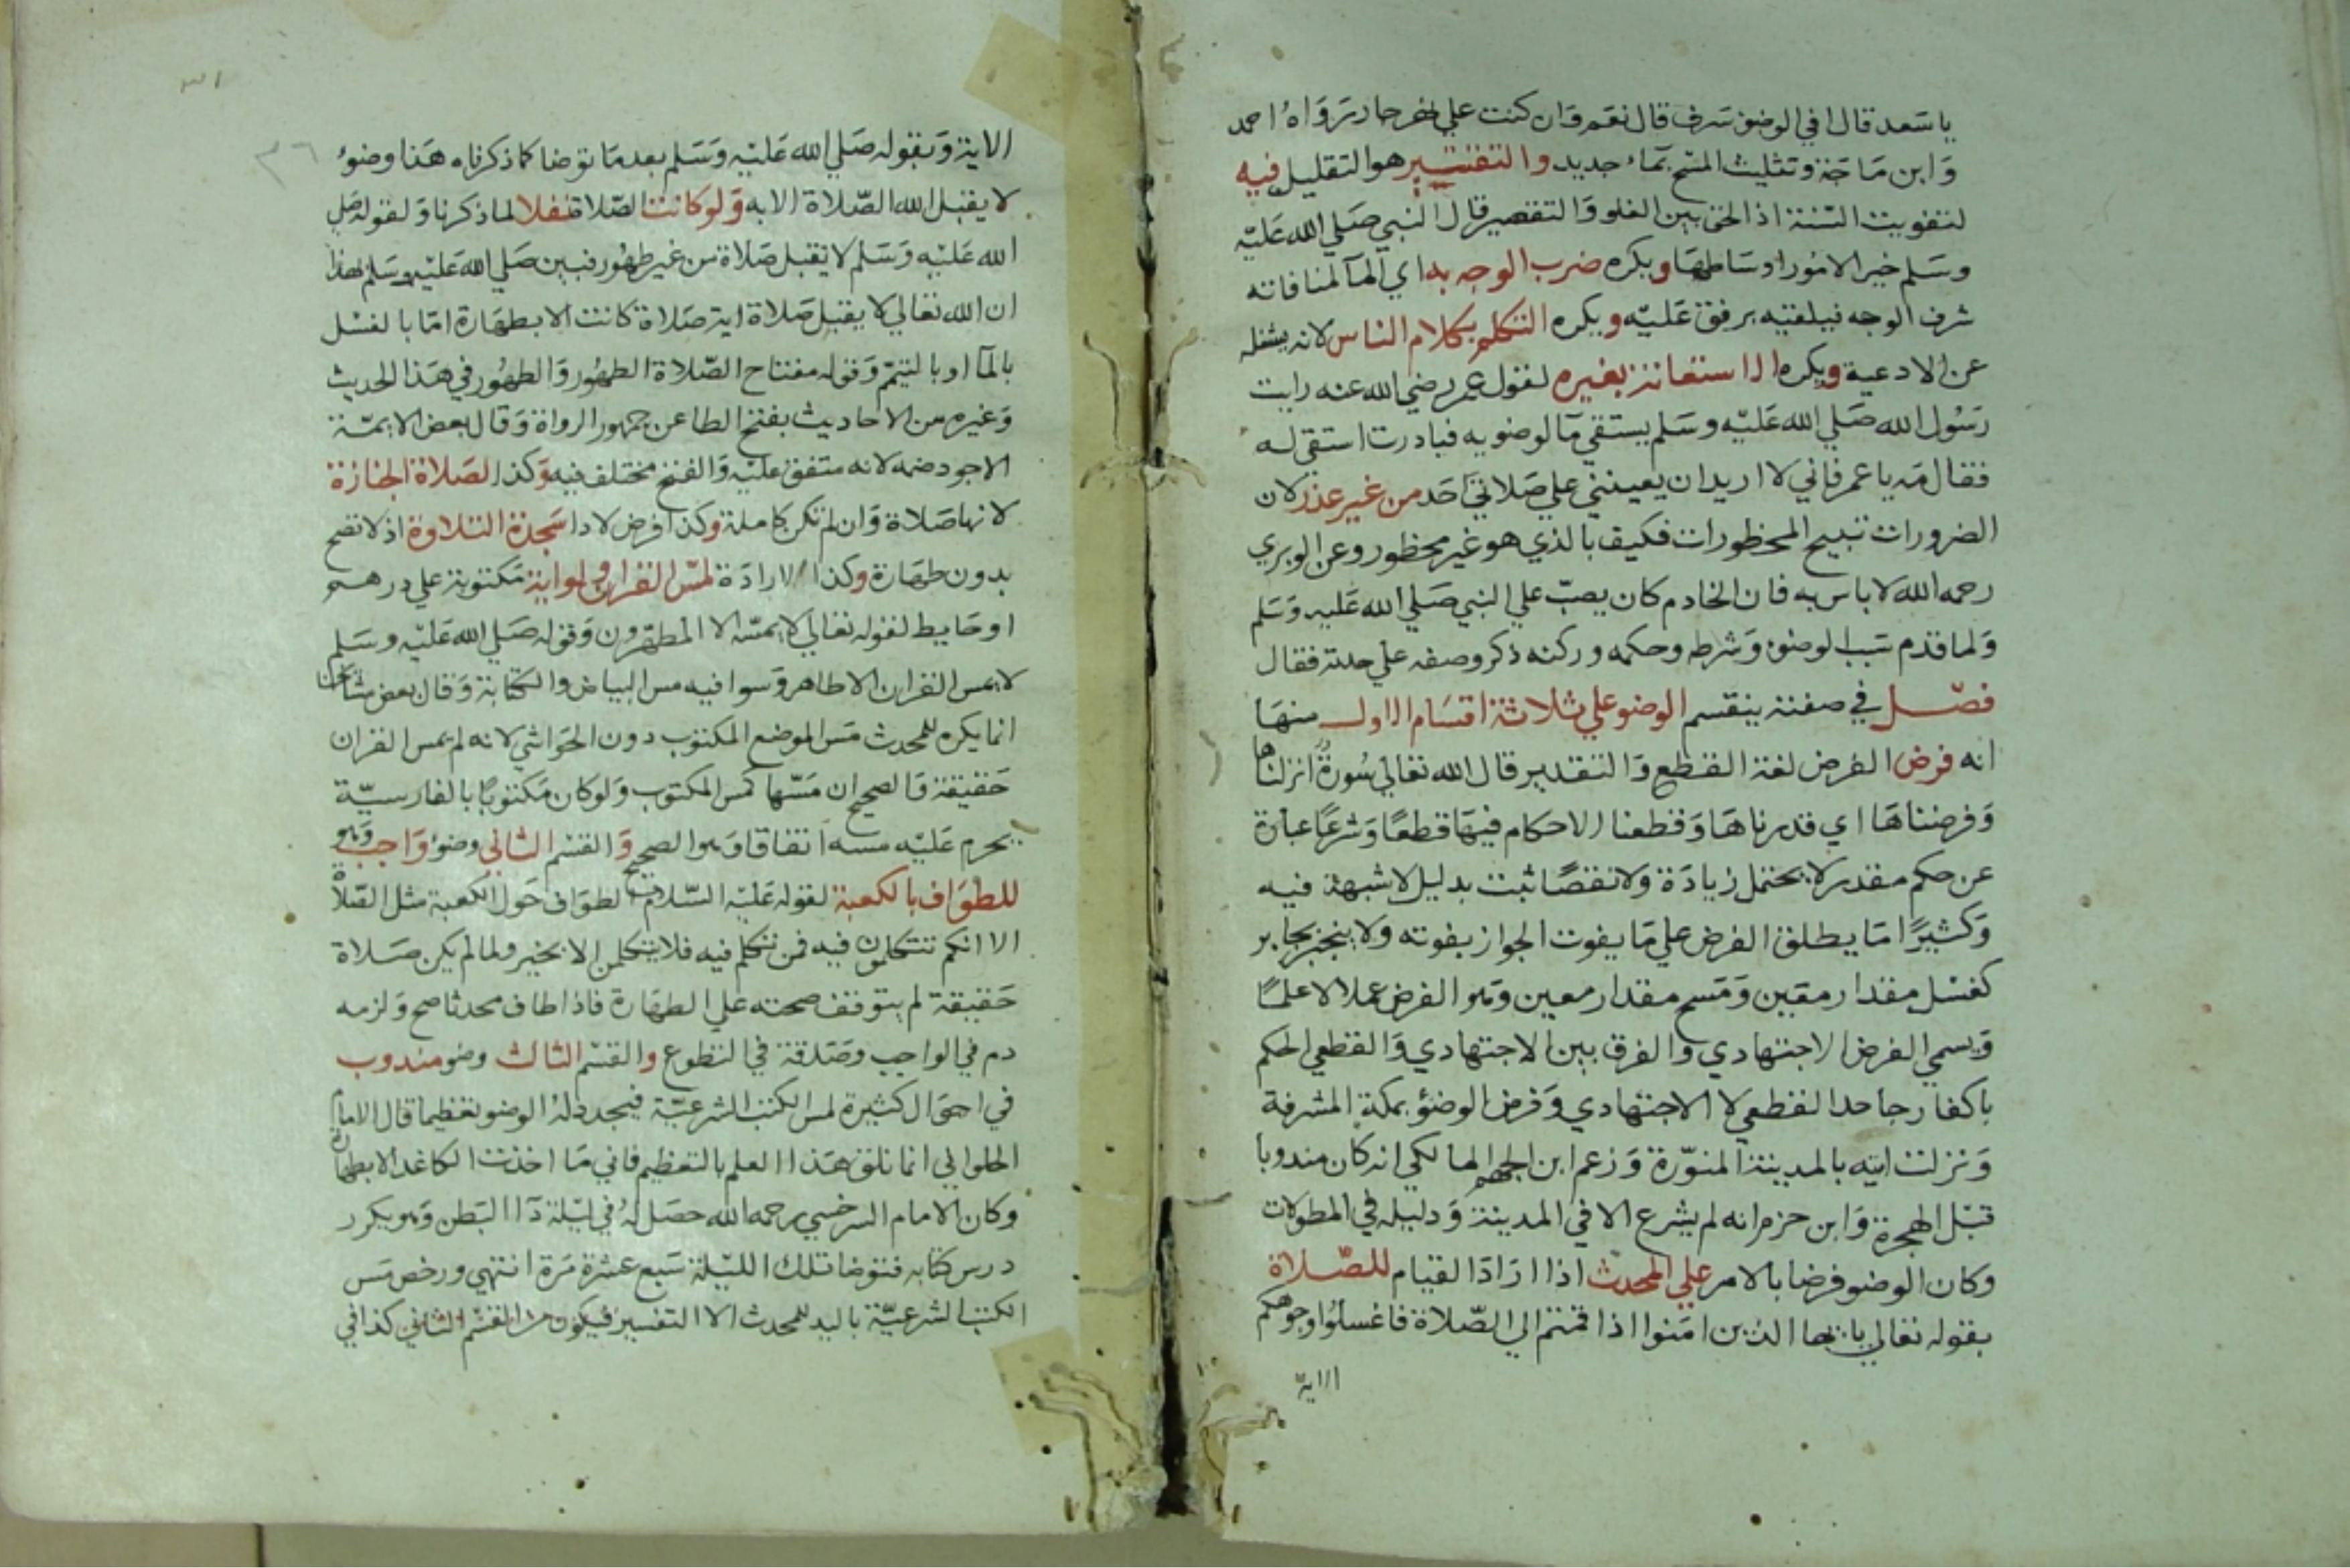 يا سَعد قال افي الوضوء سَرف قال نعم وَان كنت علي نهر جار رَوَاهُ احمد
وَابن مَاجَة وتثليث المسْح بمَاء جديد والتقتير هو التقليل فيه
لتفويت السّنة اذ الحق بين الغلو وَالتقصير قال النبي صَلي الله عَليْه
وسَلم خير الامور اوسَاطهَا ويكره ضرب الوجه به اي المآ لمنافاته
شرف الوجه فيلقيه برفق عَليْه ويكره التكلم بكلام الناس لانه يشغله
عن الادعية ويكره الاستعانة بغيره لقول عمر رضي الله عنه رايت
رَسُول الله صَلي الله عَليْه وسَلم يستقي مآ لوضويه فبادرت استقي له
فقال مَه يا عمر فاني لا اريد ان يعينني علي صَلاتي احَد من غير عذر لان
الضرورات تبيح المحظورات فكيف بالذي هو غير محظور وعن الوبري
رحمه الله لا باس به فان الخادم كان يصبّ علي النبي صَلي الله عَليه وَسَلم
وَلما قدم سَبب الوضوء وَشرطه وحكمه وركنه ذكر وصفه علي حدته فقال
فصْل في صفته ينقسم الوضو علي ثلاثة اقسَام الاول منهَا
انه فرض الفرض لغة القطع وَالتقدير قال الله تعالي سُورةٌ انزلناها
وَفرضناهَا اي قدرناهَا وَقطعنا الاحكام فيهَا قطعًا وَشرعًا عبارة
عن حكم مقدر لا يحتمل زيادَة ولا نقصًا ثبت بدليل لا شبهة فيه
وَكثيرًا مَا يطلق الفرض علي مَا يفوت الجواز بفوته ولا ينجبر بجابر
كغسْل مقدار معَين وَمَسح مقدار معين وَهو الفرض عملا لا علمًا
وَيسمي الفرض الاجتهادي والفرق بين الاجتهادي وَالقطعي الحكم
باكفار جاحد القطعي لا الاجتهادي وَفرض الوضوْ بمكة المشرفة
وَنزلت ايته بالمدينة المنوّرة وَزعم ابن الجهم المالكي انه كان مندوبا
قبْل الهجرة وَابن حزم انه لم يشرع الا في المدينة وَدليله في المطولات
وكان الوضو فرضا بالامر علي المحدث اذا ارَادَ القيام للصّلاة
بقوله تعالي يا ايها الذين امَنوا اذا قمتم الي الصّلاة فاغسلوُا وجوهكم
الاية
٣١
٣٦
الاية وَبقوله صَلي الله عَليْه وَسَلم بعد مَا توضا كما ذكرناه هَذا وضوُء
لا يقبل الله الصّلاة الا به وَلو كانت الصّلاة نفلا لما ذكرنا وَلقوله صَلي
الله عَليْه وَسَلم لا يقبل صَلاة من غير طهُور فبين صَلي الله عَليْه وسَلم بهذا
ان الله تعالي لا يقبل صَلاة اية صَلاة كانت الا بطهَارة امَا بالغسْل
بالمآ او بالتيمّم وَقوله مفتاح الصّلاة الطهُور وَالطهُور في هَذا الحديث
وَغيره من الاحاديث بفتح الطا عن جمهور الرواة وَقال بعض الايمّة
الاجود ضمه لانه متفق عليْه وَالفتح مختلف فيه وَكذا لصَلاة الجنازة
لانها صَلاة وَان لم تكن كاملة وكذا فرض لادا سَجدة التلاوة اذ لا تصح
بدون طهَارة وكذا لارادَة لمسّ القران ولو اية مَكتوبة علي درهم
او حَايط لقوله تعالي لا يمسّه الا المطهّرون وَقوله صَلي الله عَليْه وسَلم
لا يمس القران الا طاهر وَسوا فيه مس البياض والكتابة وَقال بعض مشايخنا
انما يكره للمحدث مَس الموضع المكتوب دون الحَواشي لانه لم يمس القران
حَقيقة وَالصحيح ان مَسّها كمس المكتوب وَلو كان مَكتوبًا بالفارسيّة
يحرم عَليْه مسه اتفاقا وَهو الصحيح وَالقسْم الثاني وضوء وَاجب وَهو
للطوَاف بالكعبة لقوله عَليْه السّلام الطوَاف حَول الكعبة مثل الصّلاة
الا انكم تتكلمون فيه فمن تكلم فيه فلا يتكلمن الا بخير ولما لم يكن صَلاة
حَقيقة لم يتوقف صحته علي الطهَارة فاذا طاف محدثا صح وَلزمه
دم في الواجب وصَدقة في التطوع والقسْم الثالث وضو مندوب
في احوَال كثيرة لمس الكتب الشرعيّة فيجدد لهُ الوضو تعظيما قال الامام
الحلواني انما نلنا هَذا العلم بالتعظيم فاني مَا اخذت الكاغد الا بطهارة
وكان الامام السرخسي رحمه الله حصَل لهُ في ليْلة دآ البَطن وَهو يكرر
درس كتابه فتوضا تلك الليْلة سَبع عشرة مَرة انتهي ورخص مَس
الكتب الشرعيّة باليد للمحدث الا التفسير فيكون من القسْم الثاني كذا في